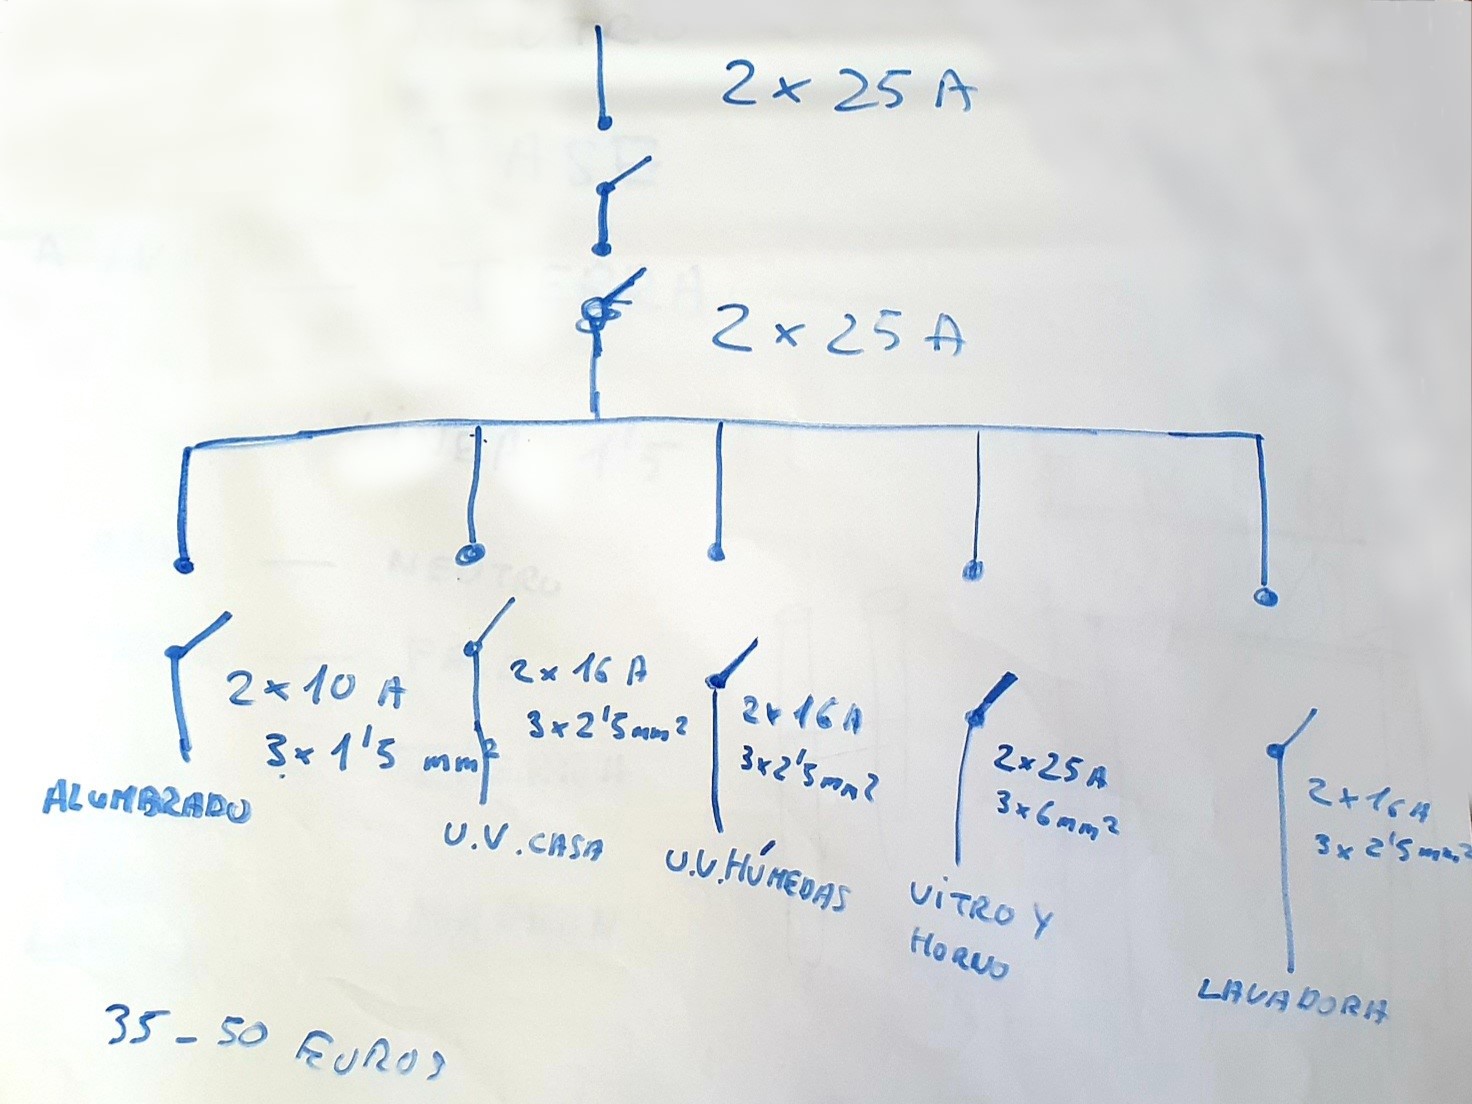 2 x 25 A
2 x 25 A
2 x 10 A
3 x 1'5 mm²
ALUMBRADO
2 x 16 A
3 x 2'5 mm²
U.V. CASA
2 x 16 A
3 x 2'5 mm²
U.V. HÚMEDAS
2 x 25 A
3 x 6 mm²
VITRO Y
HORNO
2 x 16 A
3 x 2'5 mm²
LAVADORA
35 - 50 EUROS